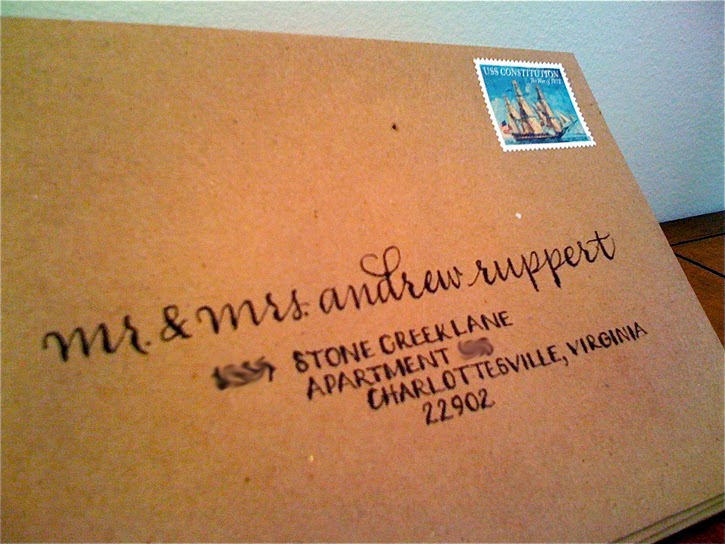 USS CONSTITUTION
The War of 1812
mr. & mrs. andrew ruppert
STONE CREEK LANE
APARTMENT
CHARLOTTESVILLE, VIRGINIA
22902